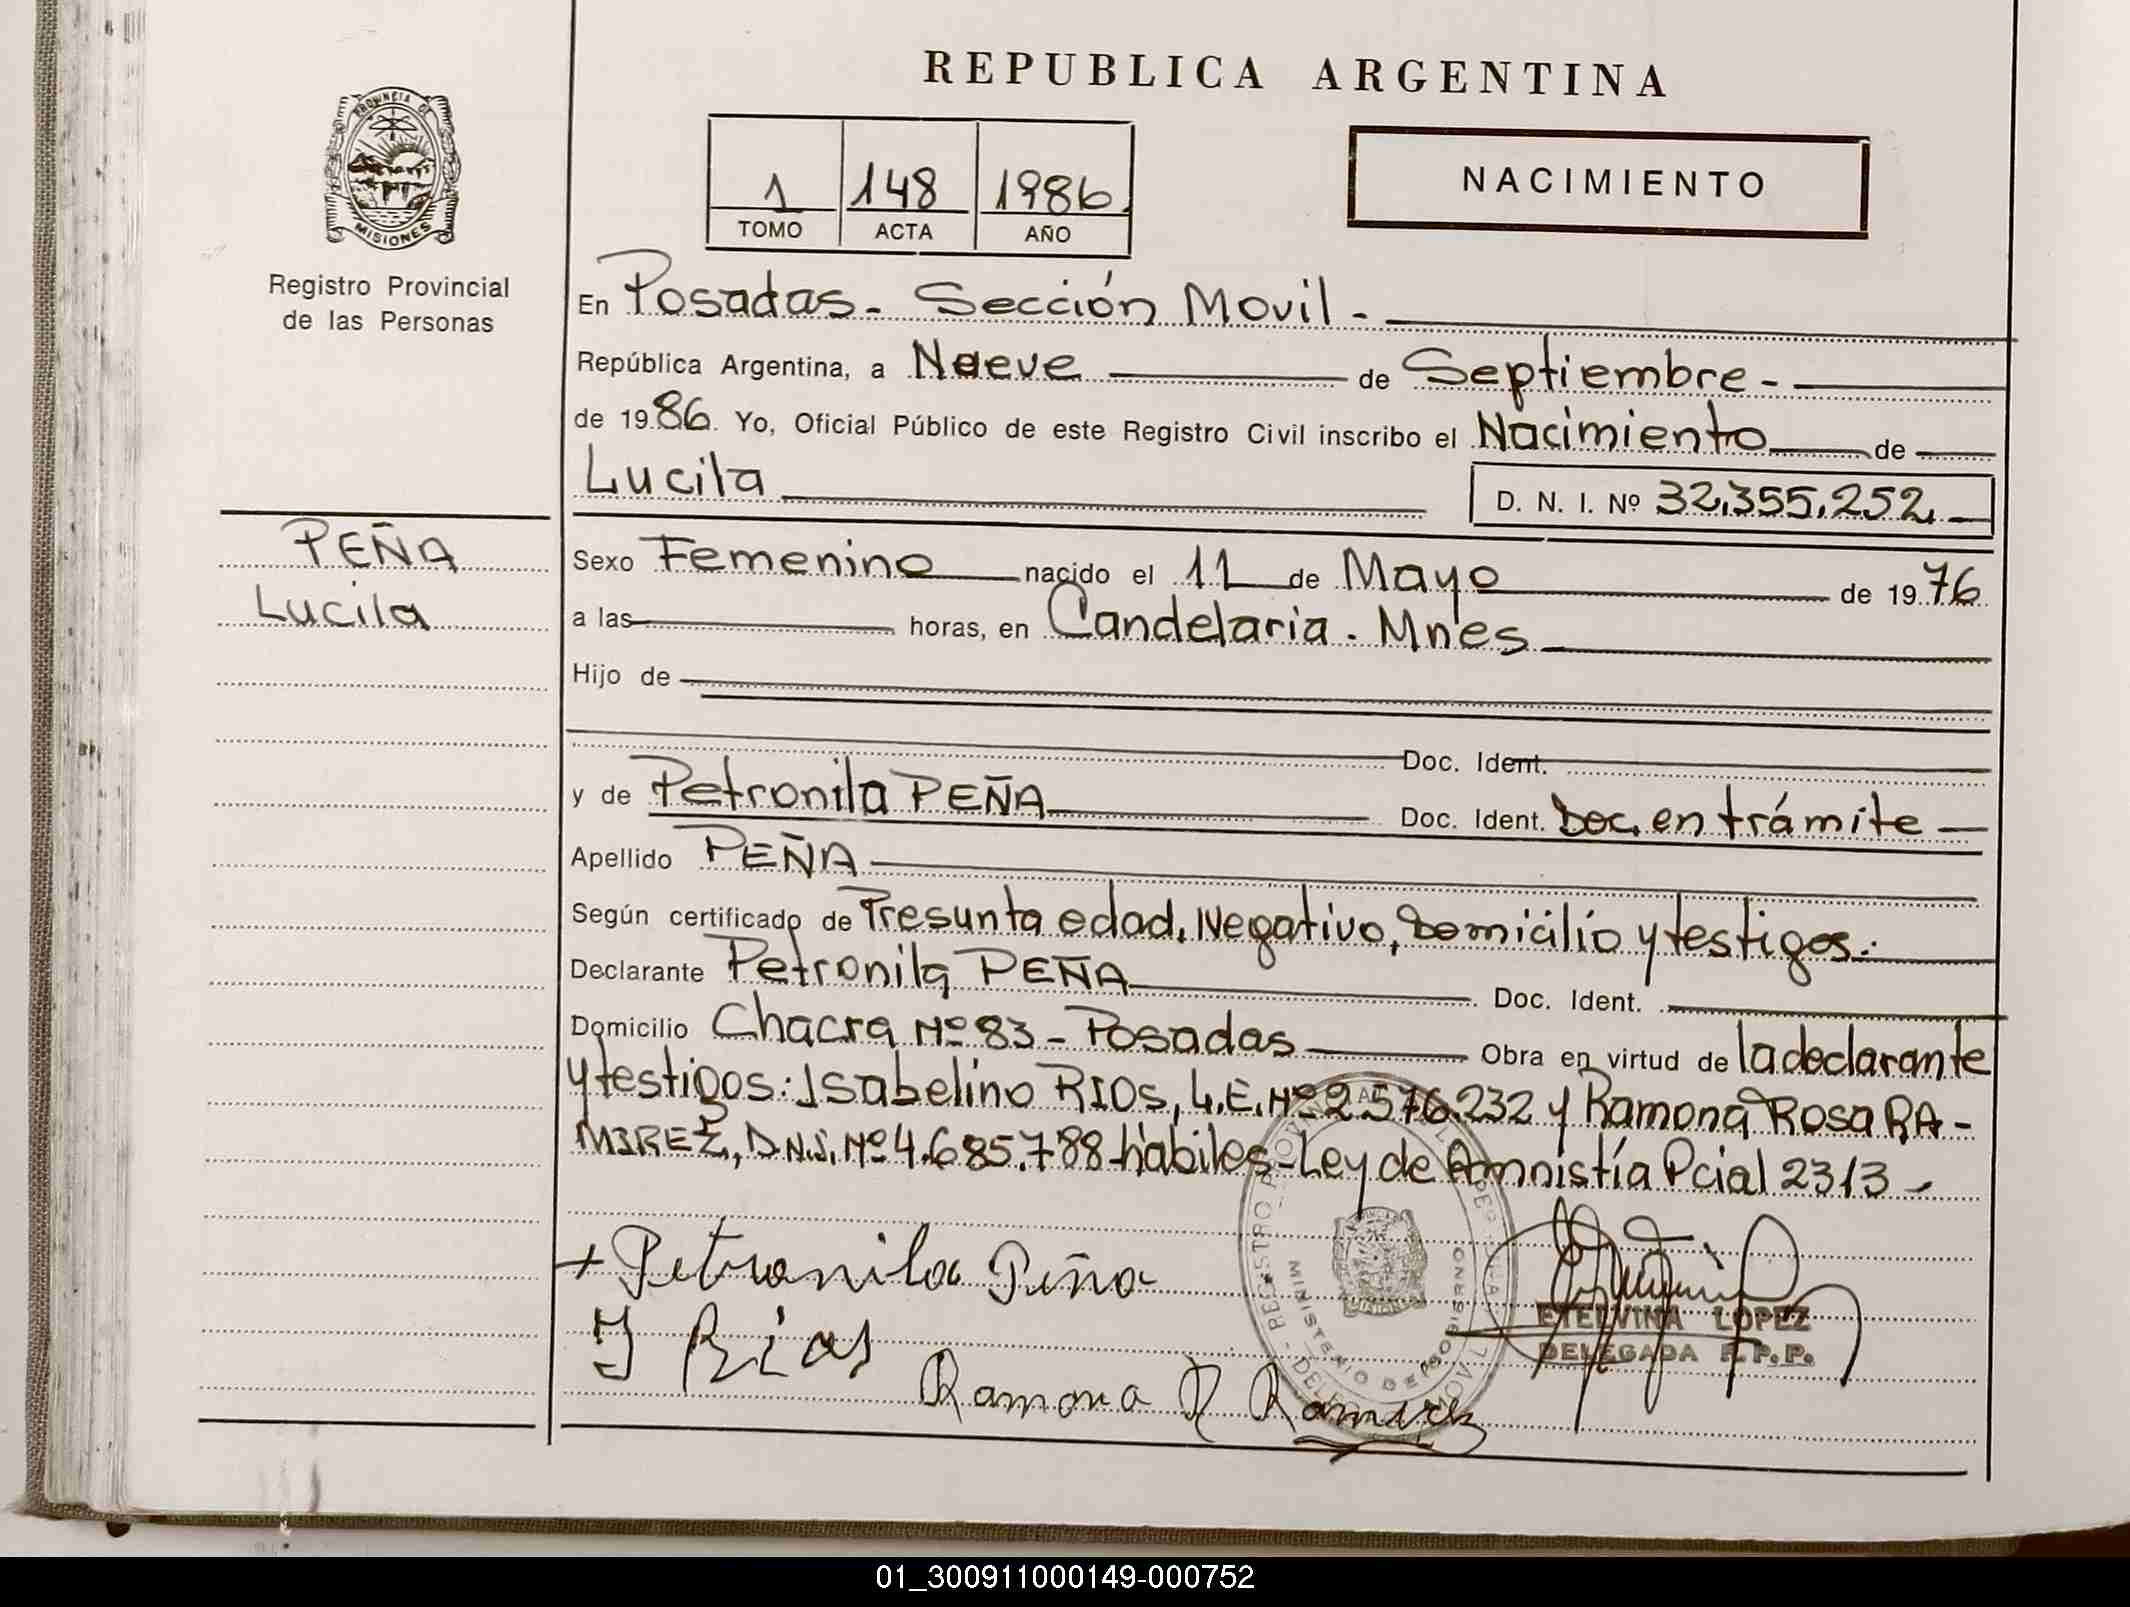 REPUBLICA ARGENTINA
PROVINCIA DE
MISIONES
Registro Provincial
de las Personas
1 148 1986
TOMO ACTA AÑO
NACIMIENTO
En Posadas - Sección Movil -
República Argentina, a Nueve de Septiembre -
de 1986. Yo, Oficial Público de este Registro Civil inscribo el Nacimiento de
Lucila D. N. I. Nº 32.355.252
PEÑA
Lucila
Sexo Femenino nacido el 11 de Mayo de 1976
a las horas, en Candelaria. Mnes
Hijo de
Doc. Ident.
y de Petronila PEÑA Doc. Ident. Doc. en trámite
Apellido PEÑA
Según certificado de Presunta edad, Negativo, Domicilio y testigos.-
Declarante Petronila PEÑA Doc. Ident.
Domicilio Chacra Nº 83 - Posadas Obra en virtud de la declarante
y testigos: Isabelino RIOS, L.E. Nº 2.576.232 y Ramona Rosa RA-
MIREZ, D.N.I. Nº 4.685.788 hábiles - Ley de Amnistía Pcial 2313 -
+ Petronila Peña
I Rios
Ramona R Ramirez
MINISTERIO DE GOBIERNO
ETELVINA LOPEZ
DELEGADA R.P.P.
01_300911000149-000752